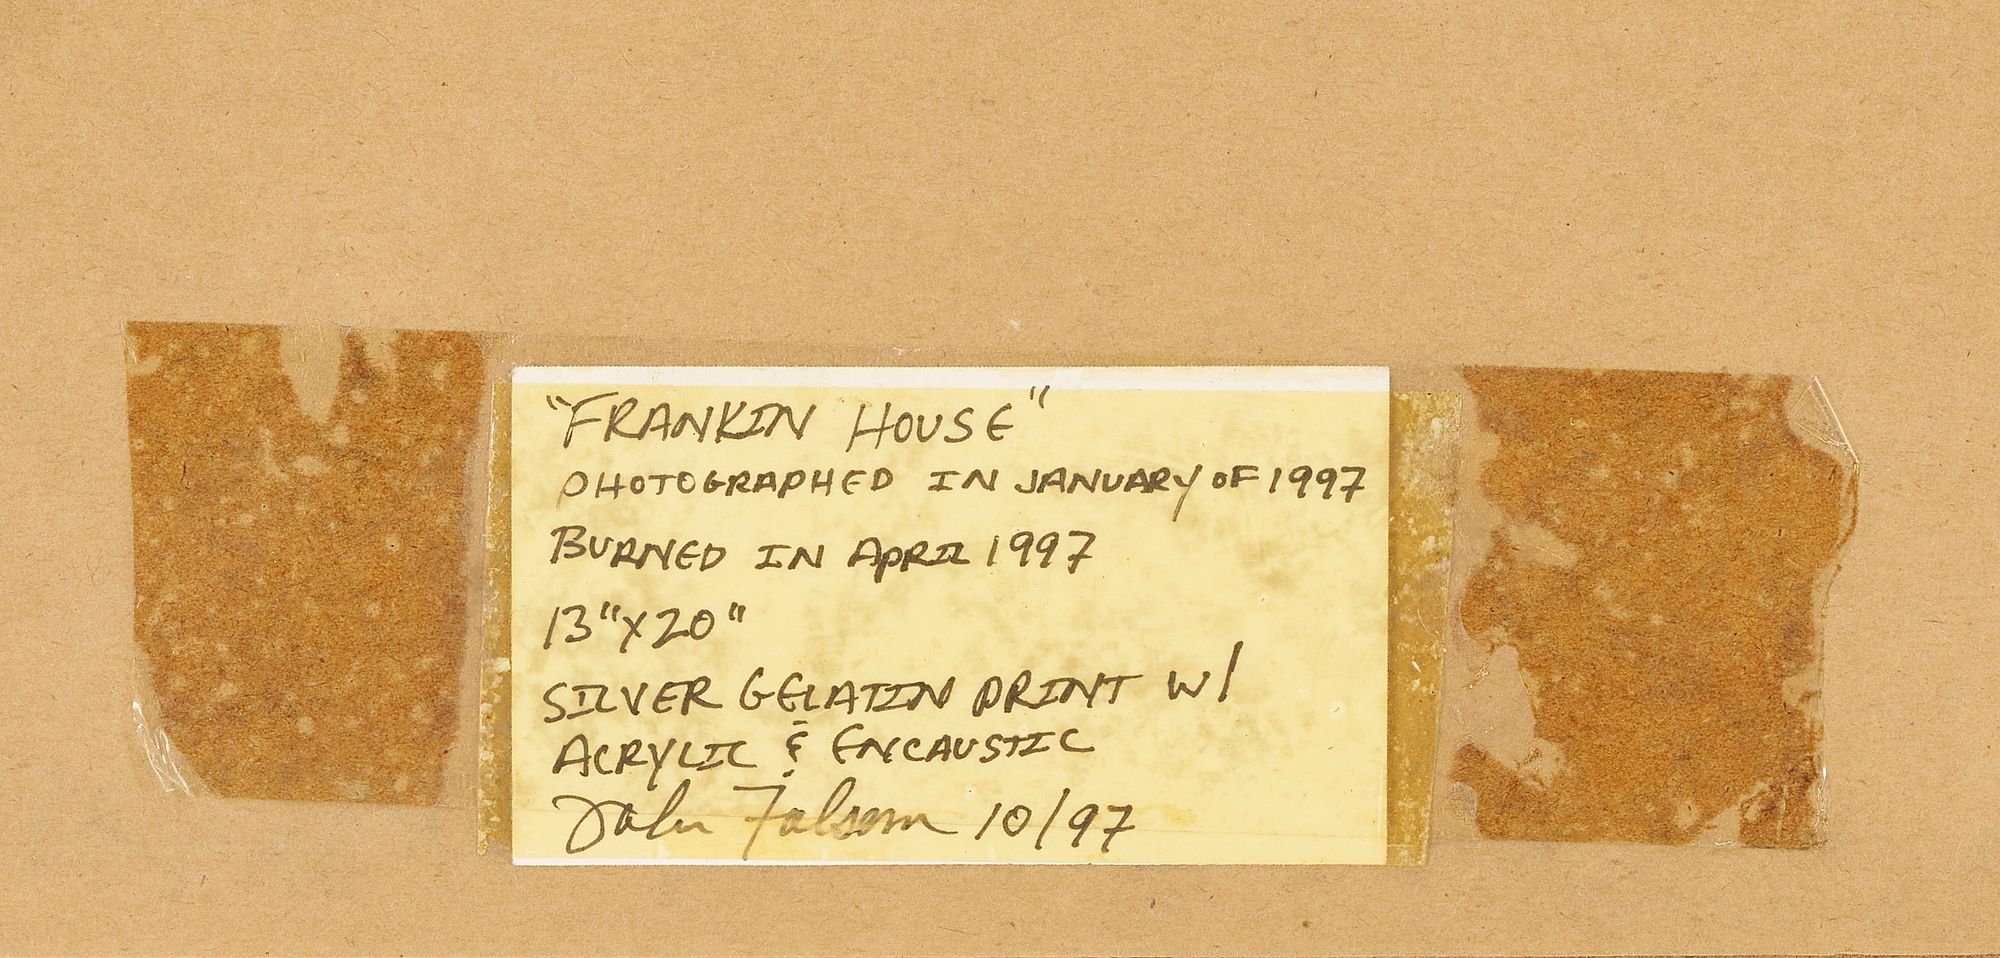 "FRANKIN HOUSE"
PHOTOGRAPHED IN JANUARY OF 1997
BURNED IN APRIL 1997
13"X20"
SILVER GELATIN PRINT W/
ACRYLIC & ENCAUSTIC
John Folsom 10/97